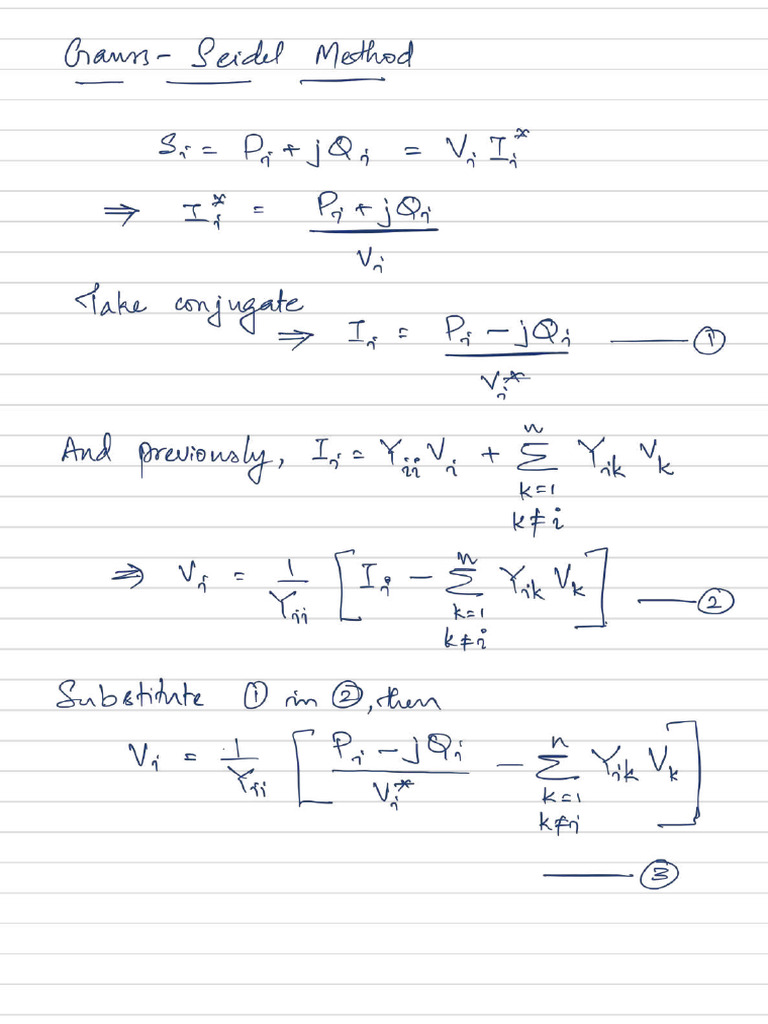 Gauss - Seidel Method
Sᵢ = Pᵢ + jQᵢ = Vᵢ Iᵢ*
⇒ Iᵢ* = (Pᵢ + jQᵢ) / Vᵢ
Take conjugate
⇒ Iᵢ = (Pᵢ - jQᵢ) / Vᵢ* —— ①
And previously, Iᵢ = Yᵢᵢ Vᵢ + Σ(k=1, k≠i)^n Yᵢₖ Vₖ
⇒ Vᵢ = 1/Yᵢᵢ [ Iᵢ - Σ(k=1, k≠i)^n Yᵢₖ Vₖ ] —— ②
Substitute ① in ②, then
Vᵢ = 1/Yᵢᵢ [ (Pᵢ - jQᵢ) / Vᵢ* - Σ(k=1, k≠i)^n Yᵢₖ Vₖ ]
—— ③